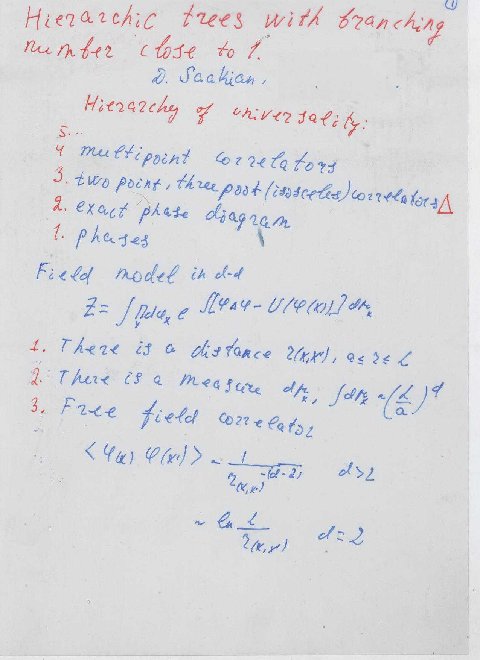 1
Hierarchic trees with branching
number close to 1.
D. Saakian.
Hierarchy of universality:
5...
4 multipoint correlators
3. two point, three poot (isosceles) correlators Δ
2. exact phase diagram
1. phases
Field model in d-d
Z = ∫ ∏ₓ dφₓ e^{∫[φΔφ - U(φ(x))] dμₓ}
1. There is a distance r(x,x'), a ≤ r ≤ L
2. There is a measure dμₓ, ∫dμₓ ~ (L/a)^d
3. Free field correlator
<φ(x) φ(x')> ~ 1/r(x,x')^{-(d-2)} d>2
~ ln L/r(x,x') d=2